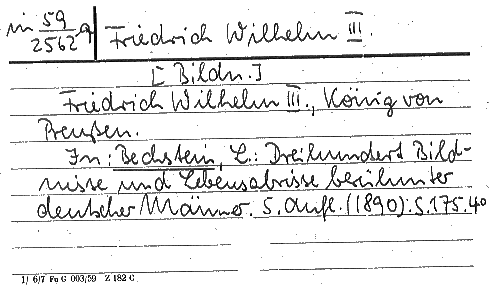 in 59/2562 q Friedrich Wilhelm III.
[Bildn.]
Friedrich Wilhelm III., König von
Preußen.
In: Bechstein, L.: Dreihundert Bild-
nisse und Lebensabrisse berühmter
deutscher Männer. 5. Aufl. (1890). S. 175. 4°
1/ 6/7 Fu G 003/59 Z 182 C